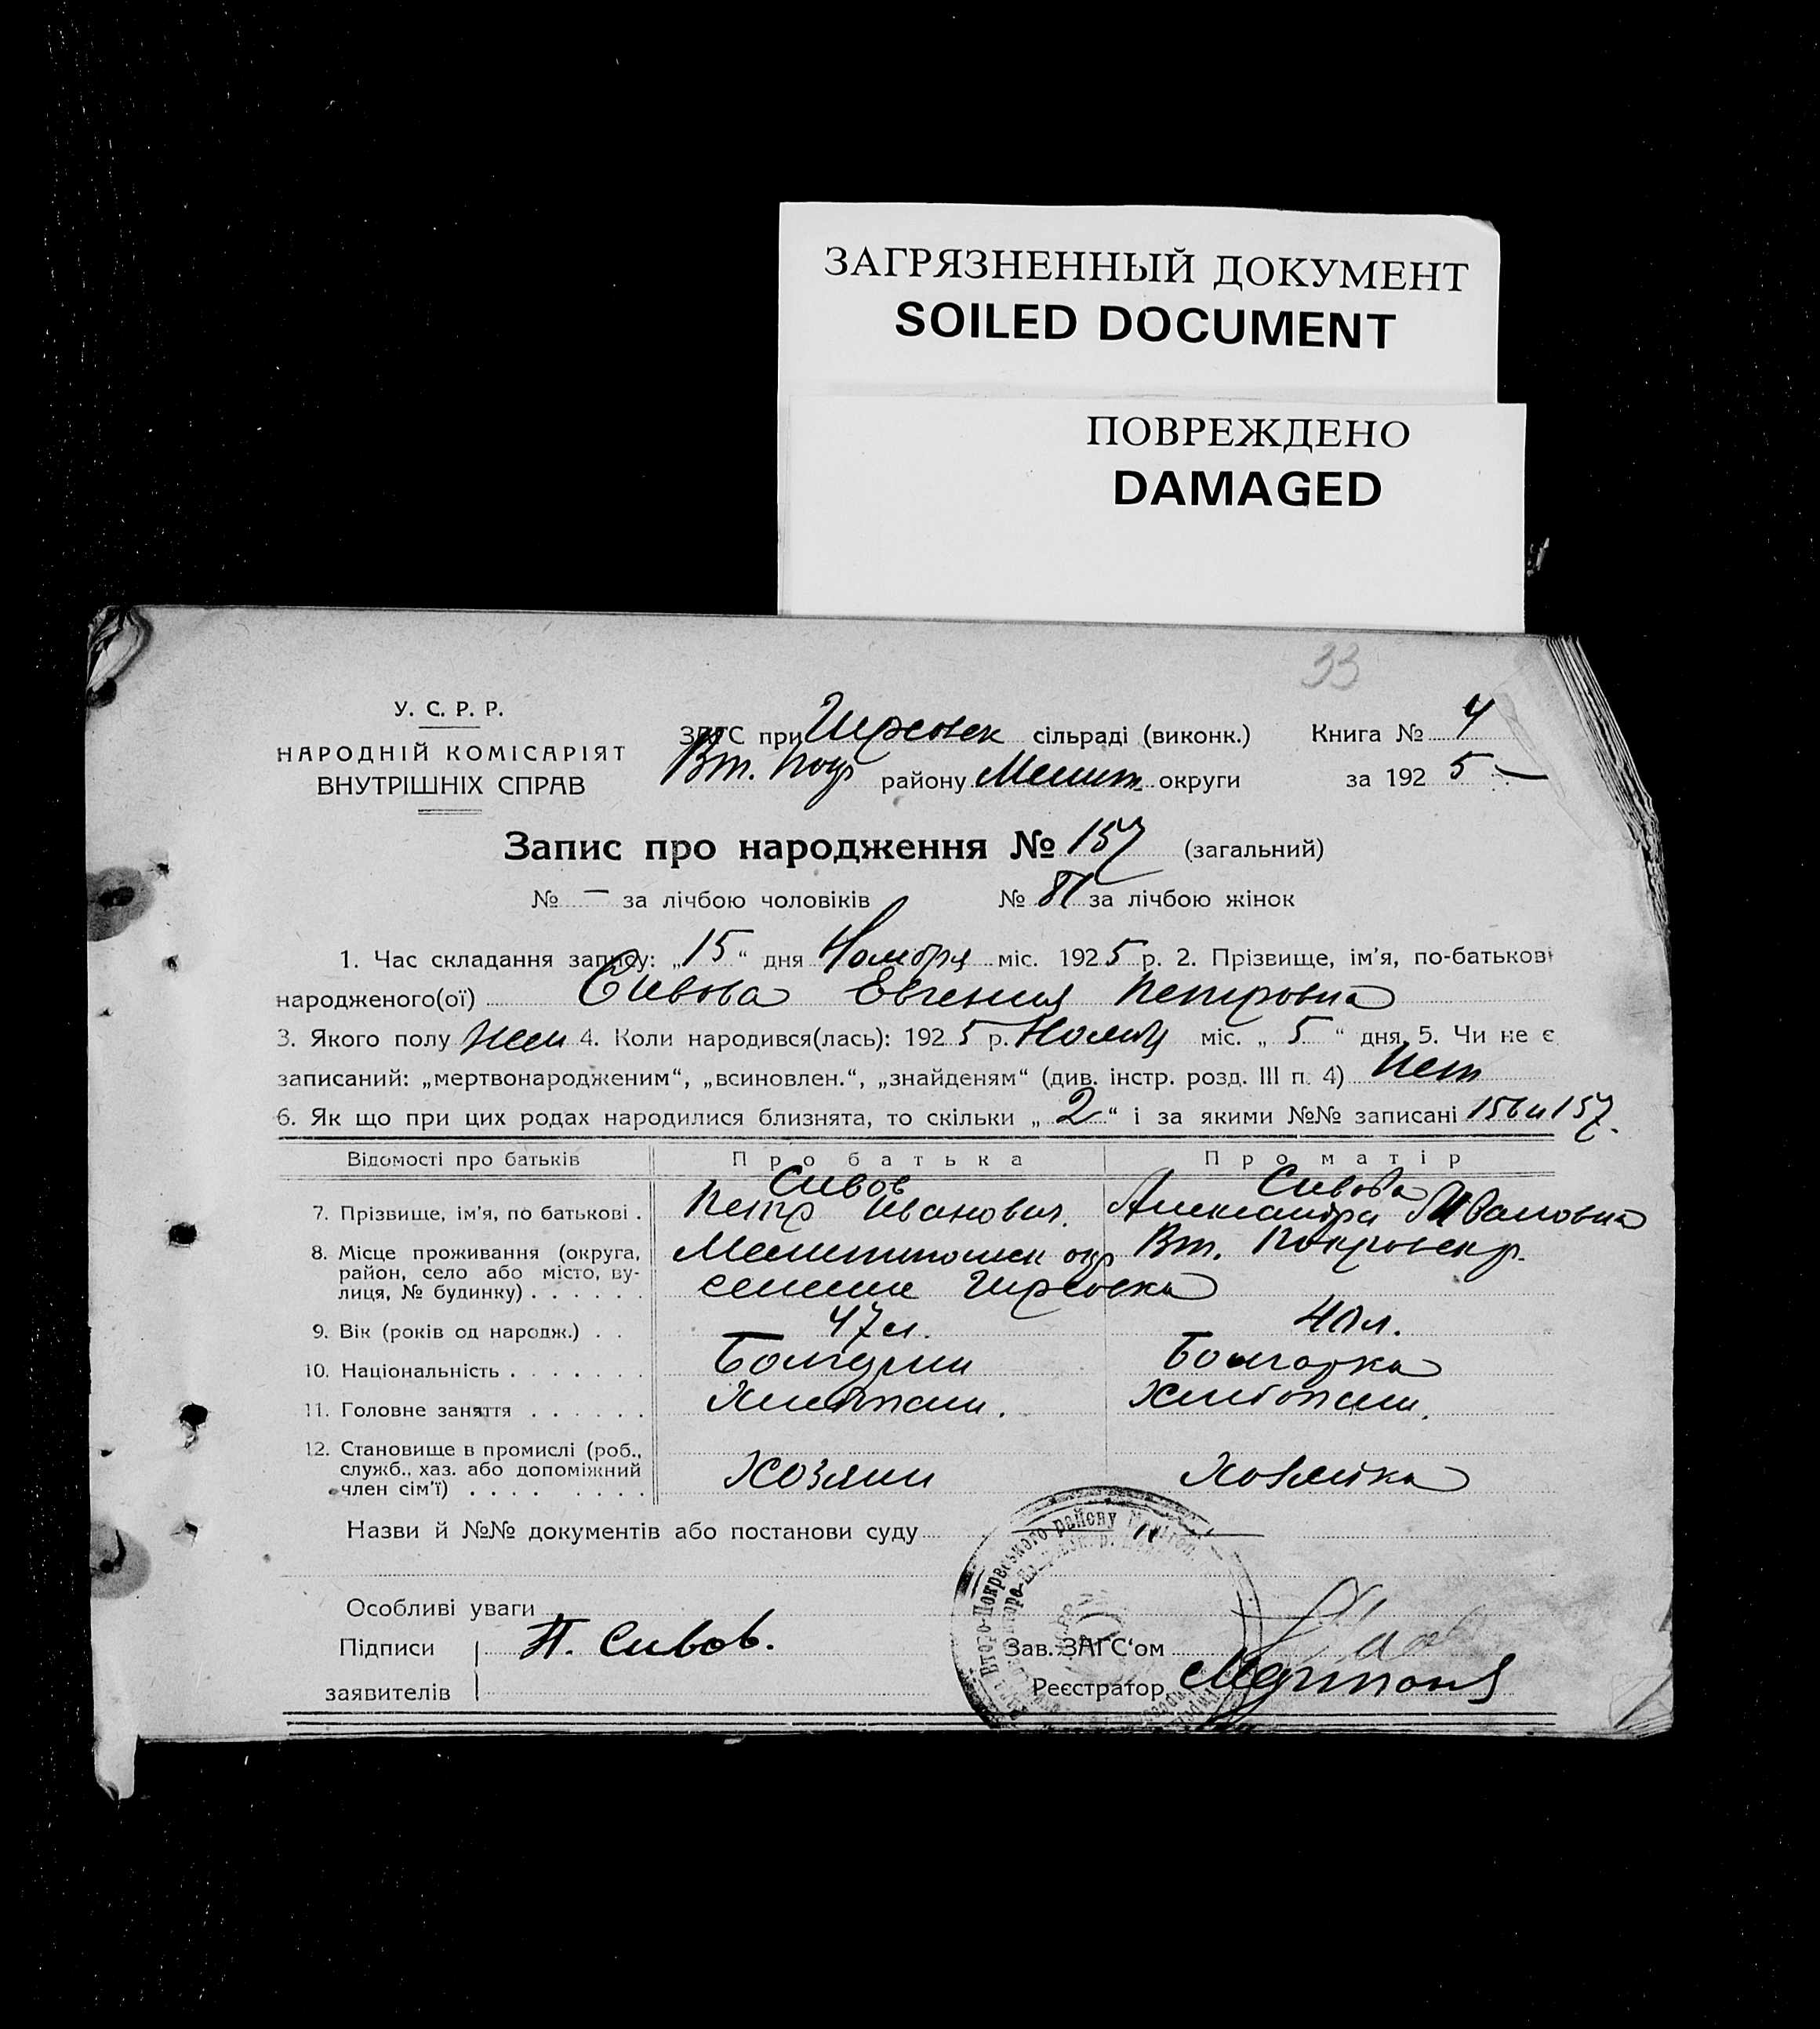 ЗАГРЯЗНЕННЫЙ ДОКУМЕНТ
SOILED DOCUMENT
ПОВРЕЖДЕНО
DAMAGED
33
У. С. Р. Р.
НАРОДНІЙ КОМІСАРІЯТ
ВНУТРІШНІХ СПРАВ
ЗАГС при Гирсовск сільраді (виконк.) Книга № 4
Вт. Покр району Мелит округи за 1925
Запис про народження № 157 (загальний)
№ — за лічбою чоловіків № 81 за лічбою жінок
1. Час складання запису: „15“ дня Ноября міс. 1925 р. 2. Прізвище, ім'я, по-батькові
народженого(ої) Сивова Евгения Петровна
3. Якого полу жен 4. Коли народився(лась): 1925 р. Ноябр міс. „5“ дня. 5. Чи не є
записаний: „мертвонародженим“, „всиновлен.“, „знайденям“ (див. інстр. розд. III п. 4) Нет
6. Як що при цих родах народилися близнята, то скільки „2“ і за якими №№ записані 156 и 157.
Відомості про батьків Про батька Про матір
Сивов Сивова
7. Прізвище, ім'я, по батькові . Петр Иванович. Александра Ивановна
8. Місце проживання (округа, Мелитопольск окр Вт. Покровск р.
район, село або місто, ву-
лиця, № будинку) . . . . . . селение Гирсовка
9. Вік (років од народж.) . . 47 л. 40 л.
10. Національність . . . . . . . Болгарин Болгарка
11. Головне заняття . . . . . . Хлебопаш. Хлебопаш.
12. Становище в промислі (роб.,
служб., хаз. або допоміжний Хозяин Хозяйка
член сім'ї) . . . . . . . .
Назви й №№ документів або постанови суду — " —
Особливі уваги
Підписи П. Сивов. Зав. ЗАГС'ом
заявителів Реєстратор
Второ-Покровського району Мелітоп.